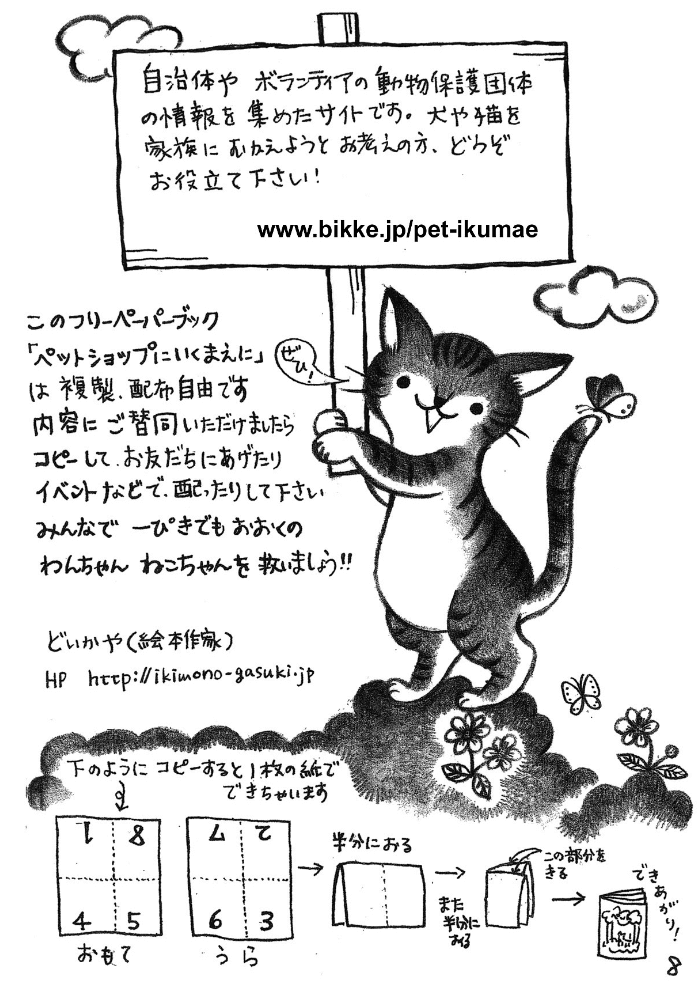 自治体や ボランティアの動物保護団体
の情報を 集めたサイトです。犬や猫を
家族に むかえようと お考えの方、どうぞ
お役立て下さい!
www.bikke.jp/pet-ikumae
このフリーペーパーブック
「ペットショップにいくまえに」
は 複製、配布自由です
内容に ご賛同いただけましたら
コピーして、お友だちにあげたり
イベントなどで、配ったりして下さい
みんなで 一ぴきでもおおくの
わんちゃん ねこちゃんを 救いましょう!!
ぜひ!
どいかや(絵本作家)
HP http://ikimono-gasuki.jp
下のように コピーすると 1枚の紙で
できちゃいます
1 8
4 5
おもて
7 2
6 3
うら
半分におる
また
半分に
おる
この部分を
きる
できあがり!
8